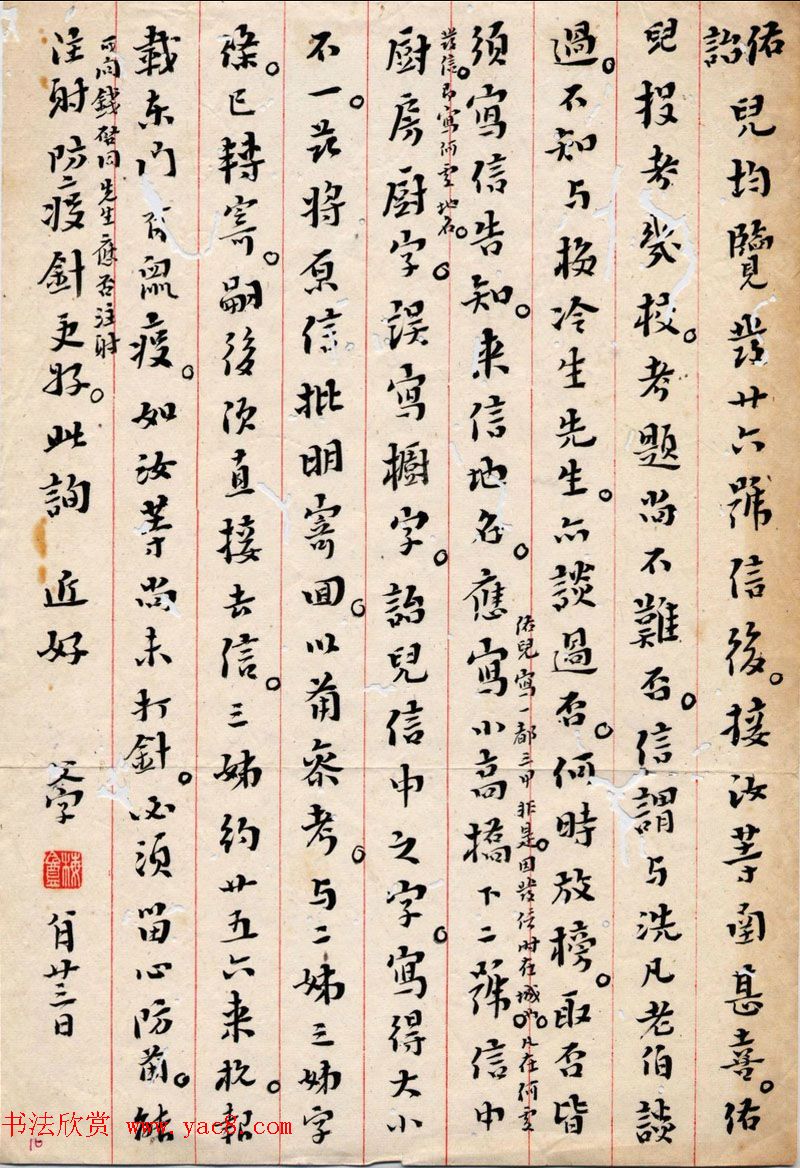 佑詒兒均覽發廿六號信後。接汝等函甚喜。佑
兒投考幾校。考題尚不難否。信謂与洗凡老伯談
過。不知与楊冷生先生。亦談過否。何時放榜。取否皆
佑兒寫一都三甲非是。因發信時在城也。凡在何處
須寫信告知。来信地名。應寫小高橋下二號信中
發信。即寫何處地名。
厨房厨字。誤寫橱字。詒兒信中之字。寫得大小
不一。茲将原信批明寄回。以備參考。与二姊三姊字
條。已轉寄。嗣後須直接去信。三姊約廿五六来杭。報
載東門有鼠疫。如汝等尚未打針。必須留心防菌。能
可向錢啓同先生應否注射
注射防疫針更好。此詢 近好
父字 月廿三日
书法欣赏 www.yac8.com